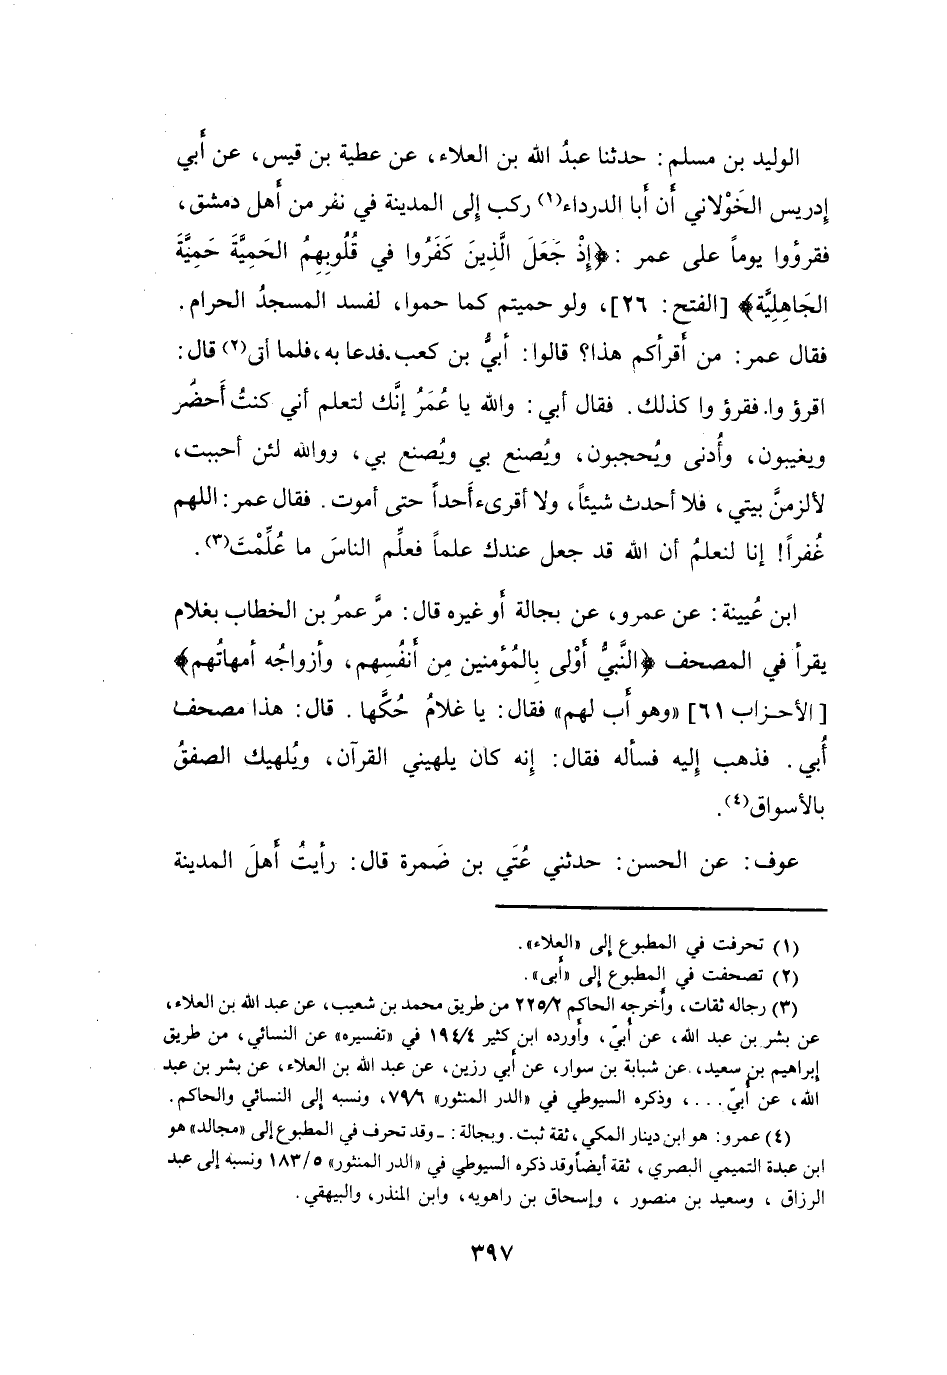 الوليد بن مسلم : حدثنا عبدُ الله بن العلاء، عن عطية بن قيس، عن أَبي
إدريس الخَوْلاني أَن أَبا الدرداء(١) ركب إلى المدينة في نفر من أَهل دمشق،
فقرؤوا يوماً على عمر : ﴿إِذْ جَعَلَ الَّذِينَ كَفَرُوا في قُلُوبِهِمُ الحَمِيَّةَ حَمِيَّةَ
الجَاهِلِيَّة﴾ [الفتح: ٢٦]، ولو حميتم كما حموا، لفسد المسجدُ الحرام.
فقال عمر: من أَقرأكم هذا؟ قالوا: أبيُّ بن كعب. فدعا به، فلما أتى(٢) قال:
اقرؤوا. فقرؤوا كذلك. فقال أبي: والله يا عُمَرُ إنَّك لتعلم أني كنتُ أَحضُر
ويغيبون، وأُدنى ويُحجبون، ويُصنع بي ويُصنع بي، ووالله لئن أحببت،
لألزمنَّ بيتي، فلا أحدث شيئاً، ولا أقرىء أَحداً حتى أموت. فقال عمر: اللهم
غُفراً! إنا لنعلمُ أن الله قد جعل عندك علماً فعلِّم الناسَ ما عُلِّمْتَ(٣).
ابن عُيينة: عن عمرو، عن بجالة أَو غيره قال: مرَّ عمرُ بن الخطاب بغلام
يقرأ في المصحف ﴿النَّبيُّ أَوْلى بِالمُؤمنين مِن أَنفُسِهم، وأَزواجُه أمهاتُهم﴾
[الأحزاب ٦١] «وهو أَب لهم» فقال: يا غلامُ حُكَّها. قال: هذا مصحف
أُبي. فذهب إليه فسأله فقال: إنه كان يلهيني القرآن، ويُلهيك الصفقُ
بالأسواق(٤).
عوف: عن الحسن: حدثني عُتَي بن ضَمرة قال: رأيتُ أَهلَ المدينة
(١) تحرفت في المطبوع إلى «العلاء».
(٢) تصحفت في المطبوع إلى «أبى».
(٣) رجاله ثقات، وأخرجه الحاكم ٢٢٥/٢ من طريق محمد بن شعيب، عن عبد الله بن العلاء،
عن بشر بن عبد الله، عن أُبيّ، وأورده ابن كثير ١٩٤/٤ في «تفسيره» عن النسائي، من طريق
إبراهيم بن سعيد، عن شبابة بن سوار، عن أبي رزين، عن عبد الله بن العلاء، عن بشر بن عبد
الله، عن أُبيّ...، وذكره السيوطي في «الدر المنثور» ٧٩/٦، ونسبه إلى النسائي والحاكم.
(٤) عمرو: هو ابن دينار المكي، ثقة ثبت. وبجالة: - وقد تحرف في المطبوع إلى «مجالد» هو
ابن عبدة التميمي البصري، ثقة أيضاً وقد ذكره السيوطي في «الدر المنثور» ١٨٣/٥ ونسبه إلى عبد
الرزاق، وسعيد بن منصور، وإسحاق بن راهويه، وابن المنذر، والبيهقي.
٣٩٧